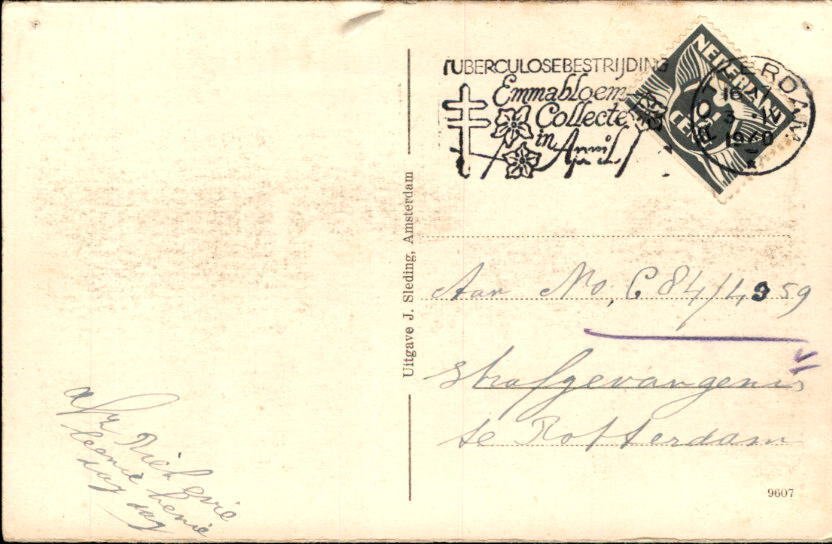 TUBERCULOSEBESTRIJDING
Emmabloem-
Collecte
in April
NEDERLAND
CENT
ROTTERDAM
16
3 IV
1940
Uitgave J. Sleding, Amsterdam
Aan No. C 84/4359
Strafgevangenis
te Rotterdam
afz Riek
dag dag
9607